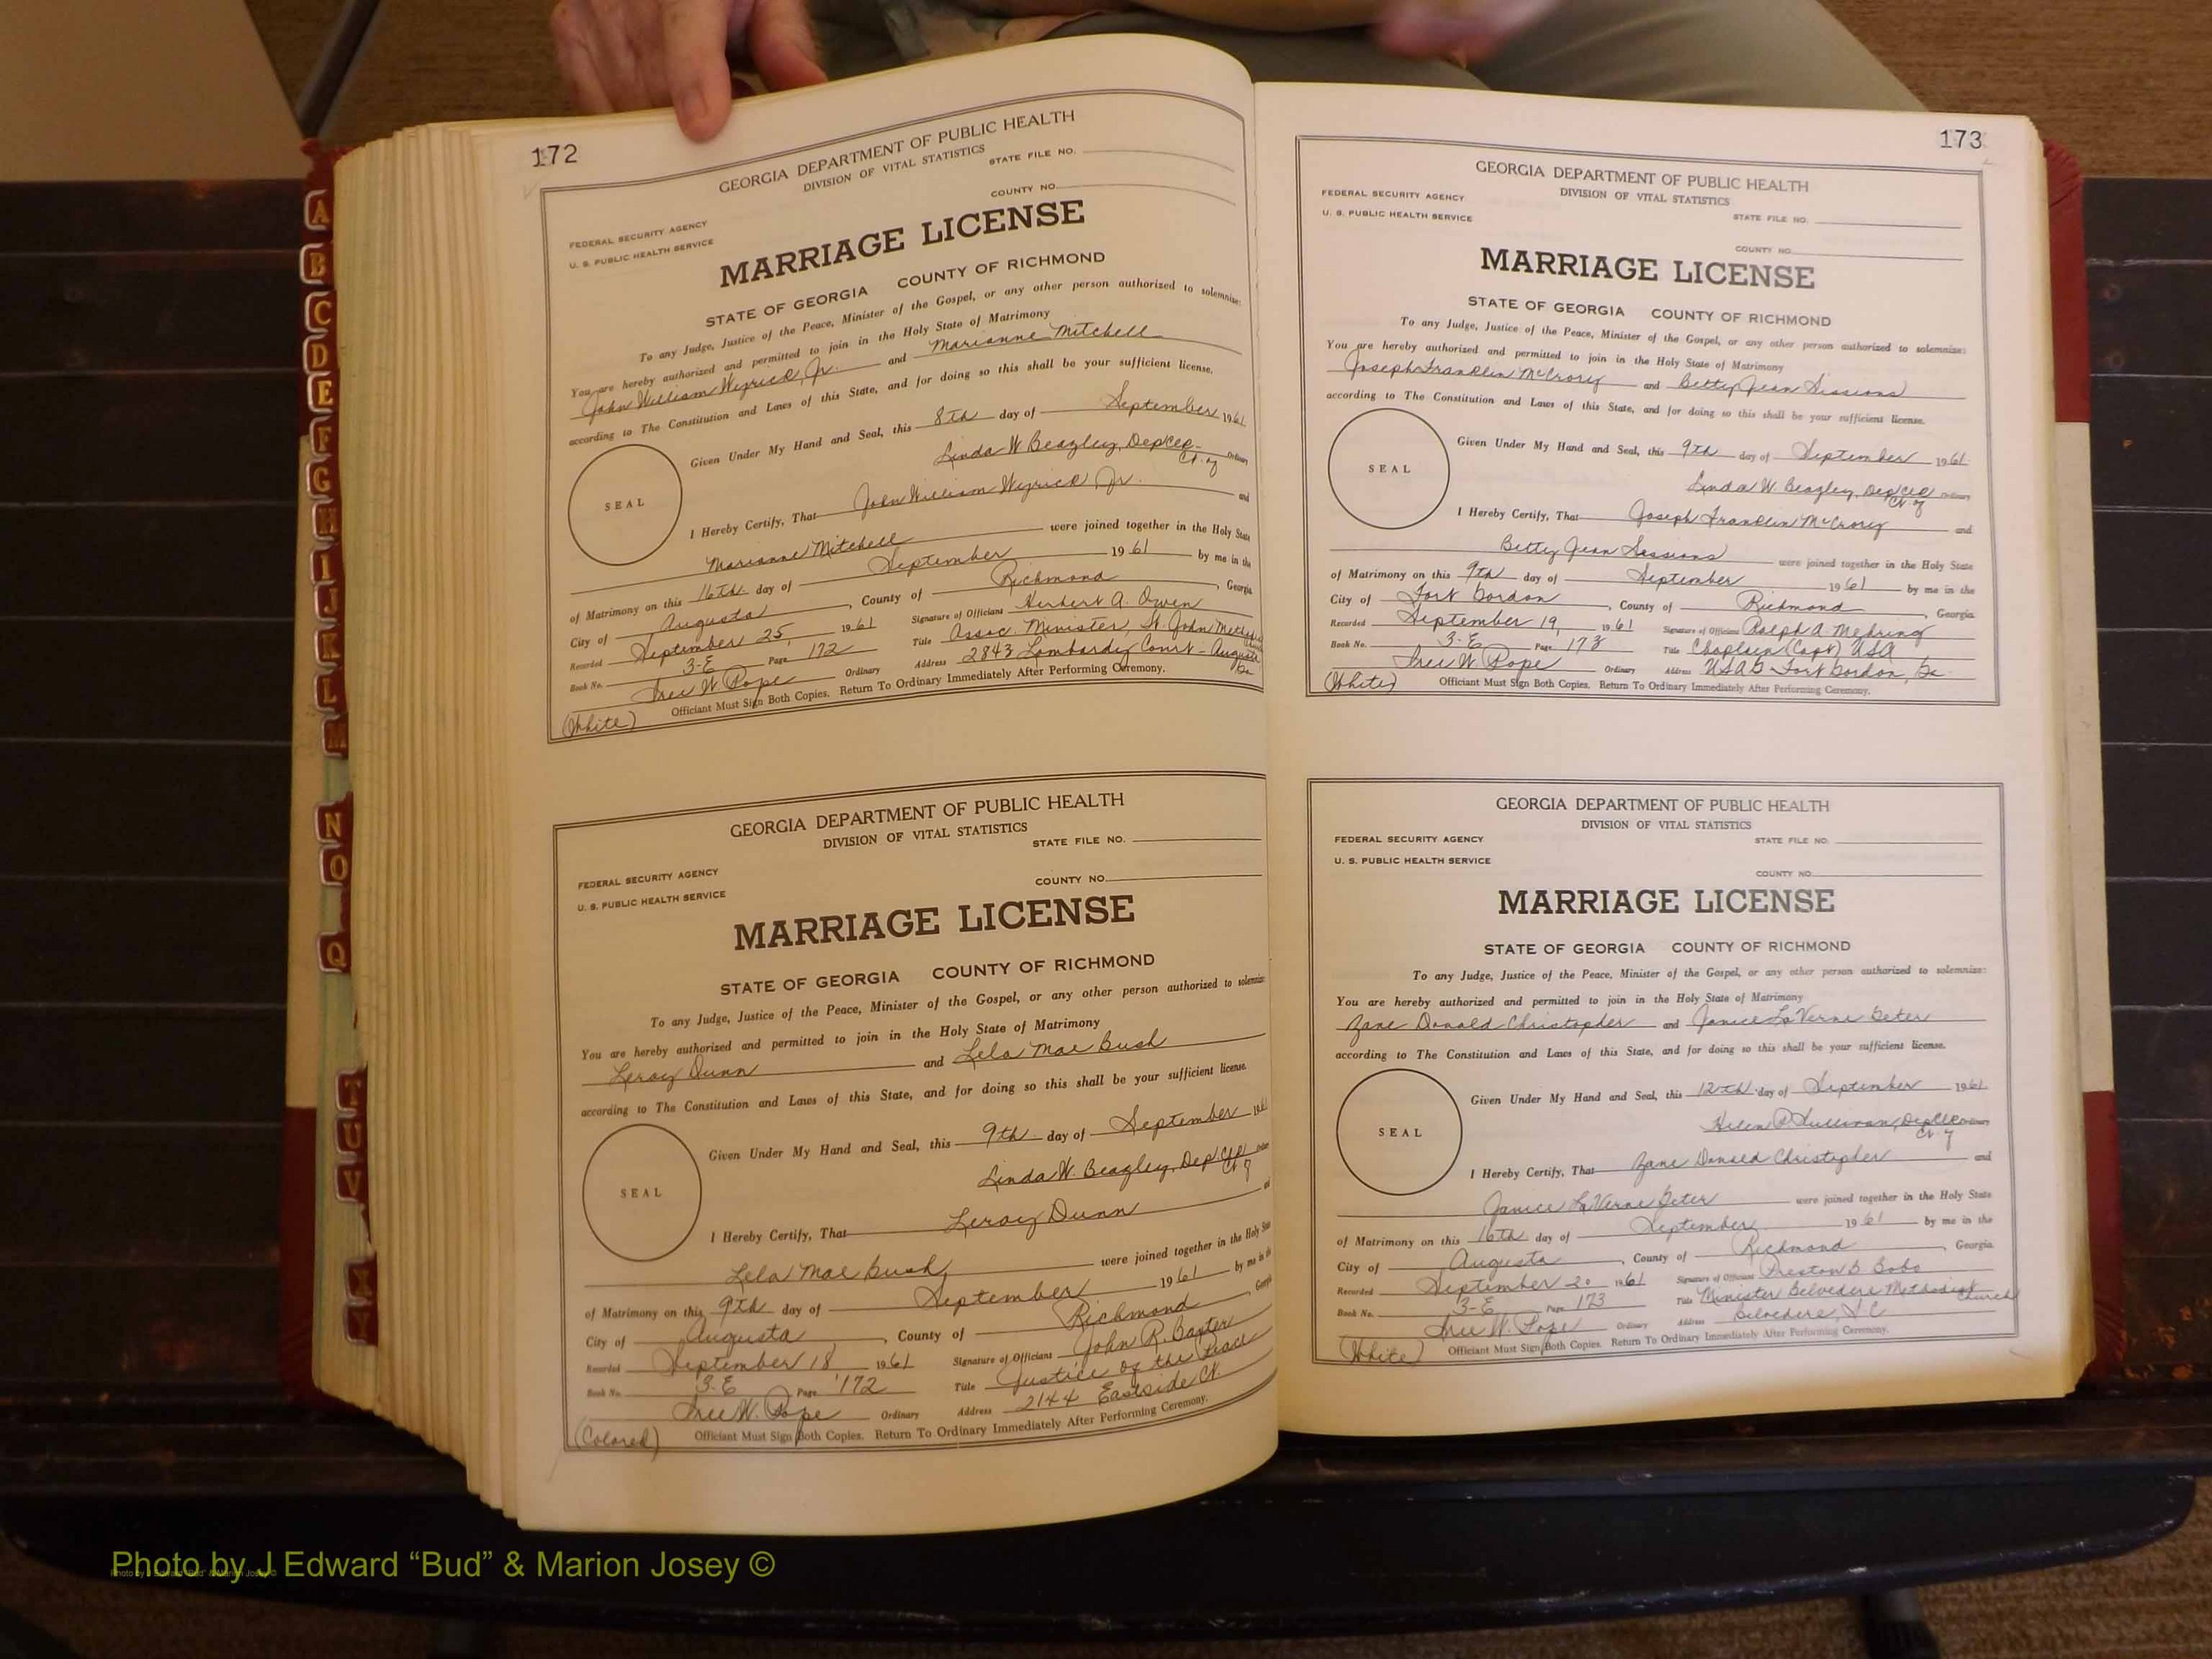 172
GEORGIA DEPARTMENT OF PUBLIC HEALTH
DIVISION OF VITAL STATISTICS
STATE FILE NO.
COUNTY NO.
FEDERAL SECURITY AGENCY
U. S. PUBLIC HEALTH SERVICE
MARRIAGE LICENSE
STATE OF GEORGIA COUNTY OF RICHMOND
To any Judge, Justice of the Peace, Minister of the Gospel, or any other person authorized to solemnize:
You are hereby authorized and permitted to join in the Holy State of Matrimony
John William Weyrick, Jr. and Marianne Mitchell
according to The Constitution and Laws of this State, and for doing so this shall be your sufficient license.
Given Under My Hand and Seal, this 8th day of September 1961
Linda W Beazley, Dep Clk Ordinary
Ct. of
SEAL
I Hereby Certify, That John William Weyrick Jr. and
Marianne Mitchell were joined together in the Holy State
of Matrimony on this 16th day of September 1961 by me in the
City of Augusta, County of Richmond, Georgia
Recorded September 25, 1961 Signature of Officiant Herbert A. Owen
Book No. 3-E Page 172 Title Assoc. Minister, St. John Methodist
Iree W. Pope Ordinary Address 2843 Lombardy Court - Augusta
Ga
(White) Officiant Must Sign Both Copies. Return To Ordinary Immediately After Performing Ceremony.
GEORGIA DEPARTMENT OF PUBLIC HEALTH
DIVISION OF VITAL STATISTICS
STATE FILE NO.
FEDERAL SECURITY AGENCY
COUNTY NO.
U. S. PUBLIC HEALTH SERVICE
MARRIAGE LICENSE
STATE OF GEORGIA COUNTY OF RICHMOND
To any Judge, Justice of the Peace, Minister of the Gospel, or any other person authorized to solemnize:
You are hereby authorized and permitted to join in the Holy State of Matrimony
Leroy Dunn and Lela Mae Bush
according to The Constitution and Laws of this State, and for doing so this shall be your sufficient license.
Given Under My Hand and Seal, this 9th day of September 1961
Linda W. Beazley, Dep Clk Ordinary
Ct of
SEAL
I Hereby Certify, That Leroy Dunn and
Lela Mae Bush were joined together in the Holy State
of Matrimony on this 9th day of September 1961 by me in the
City of Augusta, County of Richmond, Georgia
Recorded September 18 1961 Signature of Officiant John R. Baxter
Book No. 3-E Page 172 Title Justice of the Peace
Iree W. Pope Ordinary Address 2144 Eastside Ct.
(Colored) Officiant Must Sign Both Copies. Return To Ordinary Immediately After Performing Ceremony.
173
GEORGIA DEPARTMENT OF PUBLIC HEALTH
DIVISION OF VITAL STATISTICS
FEDERAL SECURITY AGENCY
U. S. PUBLIC HEALTH SERVICE
STATE FILE NO.
COUNTY NO.
MARRIAGE LICENSE
STATE OF GEORGIA COUNTY OF RICHMOND
To any Judge, Justice of the Peace, Minister of the Gospel, or any other person authorized to solemnize:
You are hereby authorized and permitted to join in the Holy State of Matrimony
Joseph Franklin McCrory and Betty Jean Sessions
according to The Constitution and Laws of this State, and for doing so this shall be your sufficient license.
Given Under My Hand and Seal, this 9th day of September 1961
Linda W. Beazley, Dep Clk Ordinary
Ct. of
SEAL
I Hereby Certify, That Joseph Franklin McCrory and
Betty Jean Sessions were joined together in the Holy State
of Matrimony on this 9th day of September 1961 by me in the
City of Fort Gordon, County of Richmond, Georgia
Recorded September 19, 1961 Signature of Officiant Ralph A Mehring
Book No. 3-E Page 173 Title Chaplain (Capt) USA
Iree W. Pope Ordinary Address USAG Fort Gordon, Ga
(White) Officiant Must Sign Both Copies. Return To Ordinary Immediately After Performing Ceremony.
GEORGIA DEPARTMENT OF PUBLIC HEALTH
DIVISION OF VITAL STATISTICS
FEDERAL SECURITY AGENCY
STATE FILE NO.
U. S. PUBLIC HEALTH SERVICE
COUNTY NO.
MARRIAGE LICENSE
STATE OF GEORGIA COUNTY OF RICHMOND
To any Judge, Justice of the Peace, Minister of the Gospel, or any other person authorized to solemnize:
You are hereby authorized and permitted to join in the Holy State of Matrimony
Zane Donald Christopher and Janice LaVerne Geter
according to The Constitution and Laws of this State, and for doing so this shall be your sufficient license.
Given Under My Hand and Seal, this 12th day of September 1961
Helen P Sullivan, Dep Clk Ordinary
Ct. of
SEAL
I Hereby Certify, That Zane Donald Christopher and
Janice LaVerne Geter were joined together in the Holy State
of Matrimony on this 16th day of September 1961 by me in the
City of Augusta, County of Richmond, Georgia
Recorded September 20 1961 Signature of Officiant Preston B Bobo
Book No. 3-E Page 173 Title Minister Belvedere Methodist Church
Iree W. Pope Ordinary Address Belvedere, S.C
(White) Officiant Must Sign Both Copies. Return To Ordinary Immediately After Performing Ceremony.
A
B
C
D
E
F
G
H
I
J
K
L
M
N
O
Q
T
U
V
Photo by J Edward “Bud” & Marion Josey ©
Photo by J Edward “Bud” & Marion Josey ©